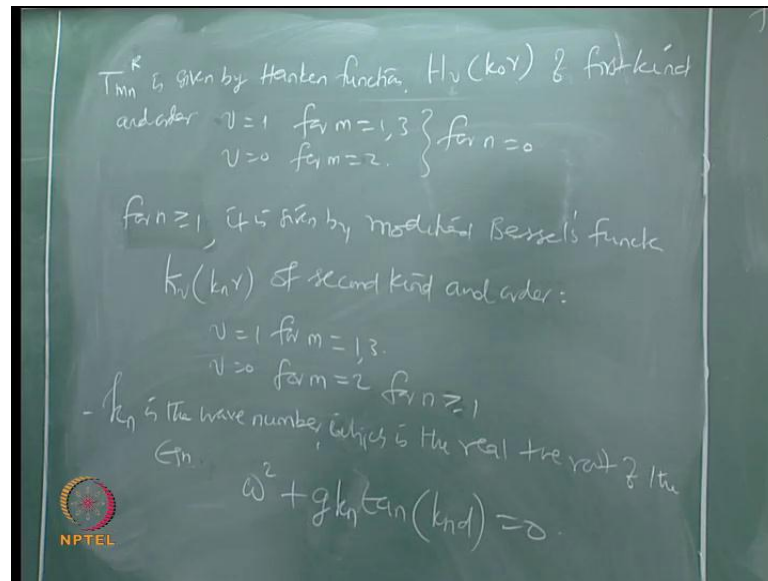 T_mn^R is given by Hanken function. H_ν(k₀r) of first kind
and order ν=1 for m=1,3 } for n=0
ν=0 for m=2.
for n≥1, it is given by modified Bessel's functn
k_ν(k_n r) of second kind and order:
ν=1 for m=1,3.
ν=0 for m=2 for n≥1
- k_n is the wave number, which is the real +ve root of the
Eqn.
ω² + gk_n tan(k_n d) = 0.
NPTEL